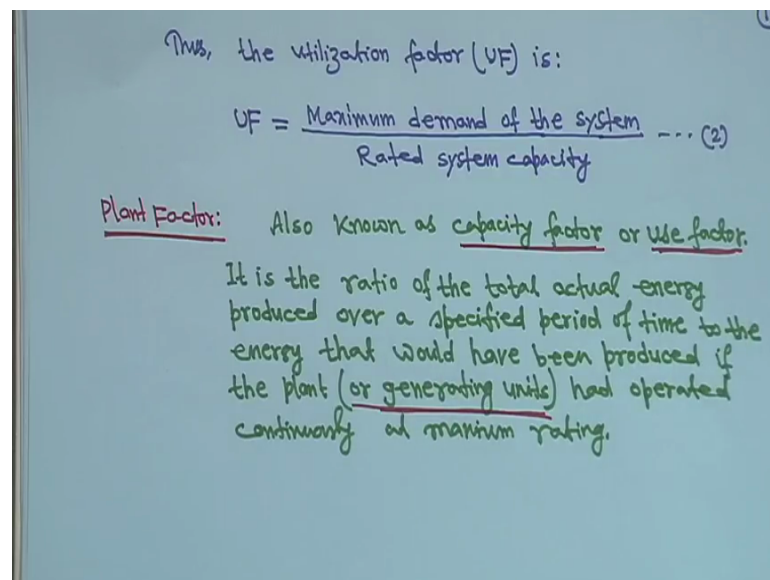 Thus, the utilization factor (UF) is:
UF = Maximum demand of the system / Rated system capacity ---- (2)
Plant Factor: Also known as capacity factor or use factor.
It is the ratio of the total actual energy
produced over a specified period of time to the
energy that would have been produced if
the plant (or generating units) had operated
continuously at manium rating.